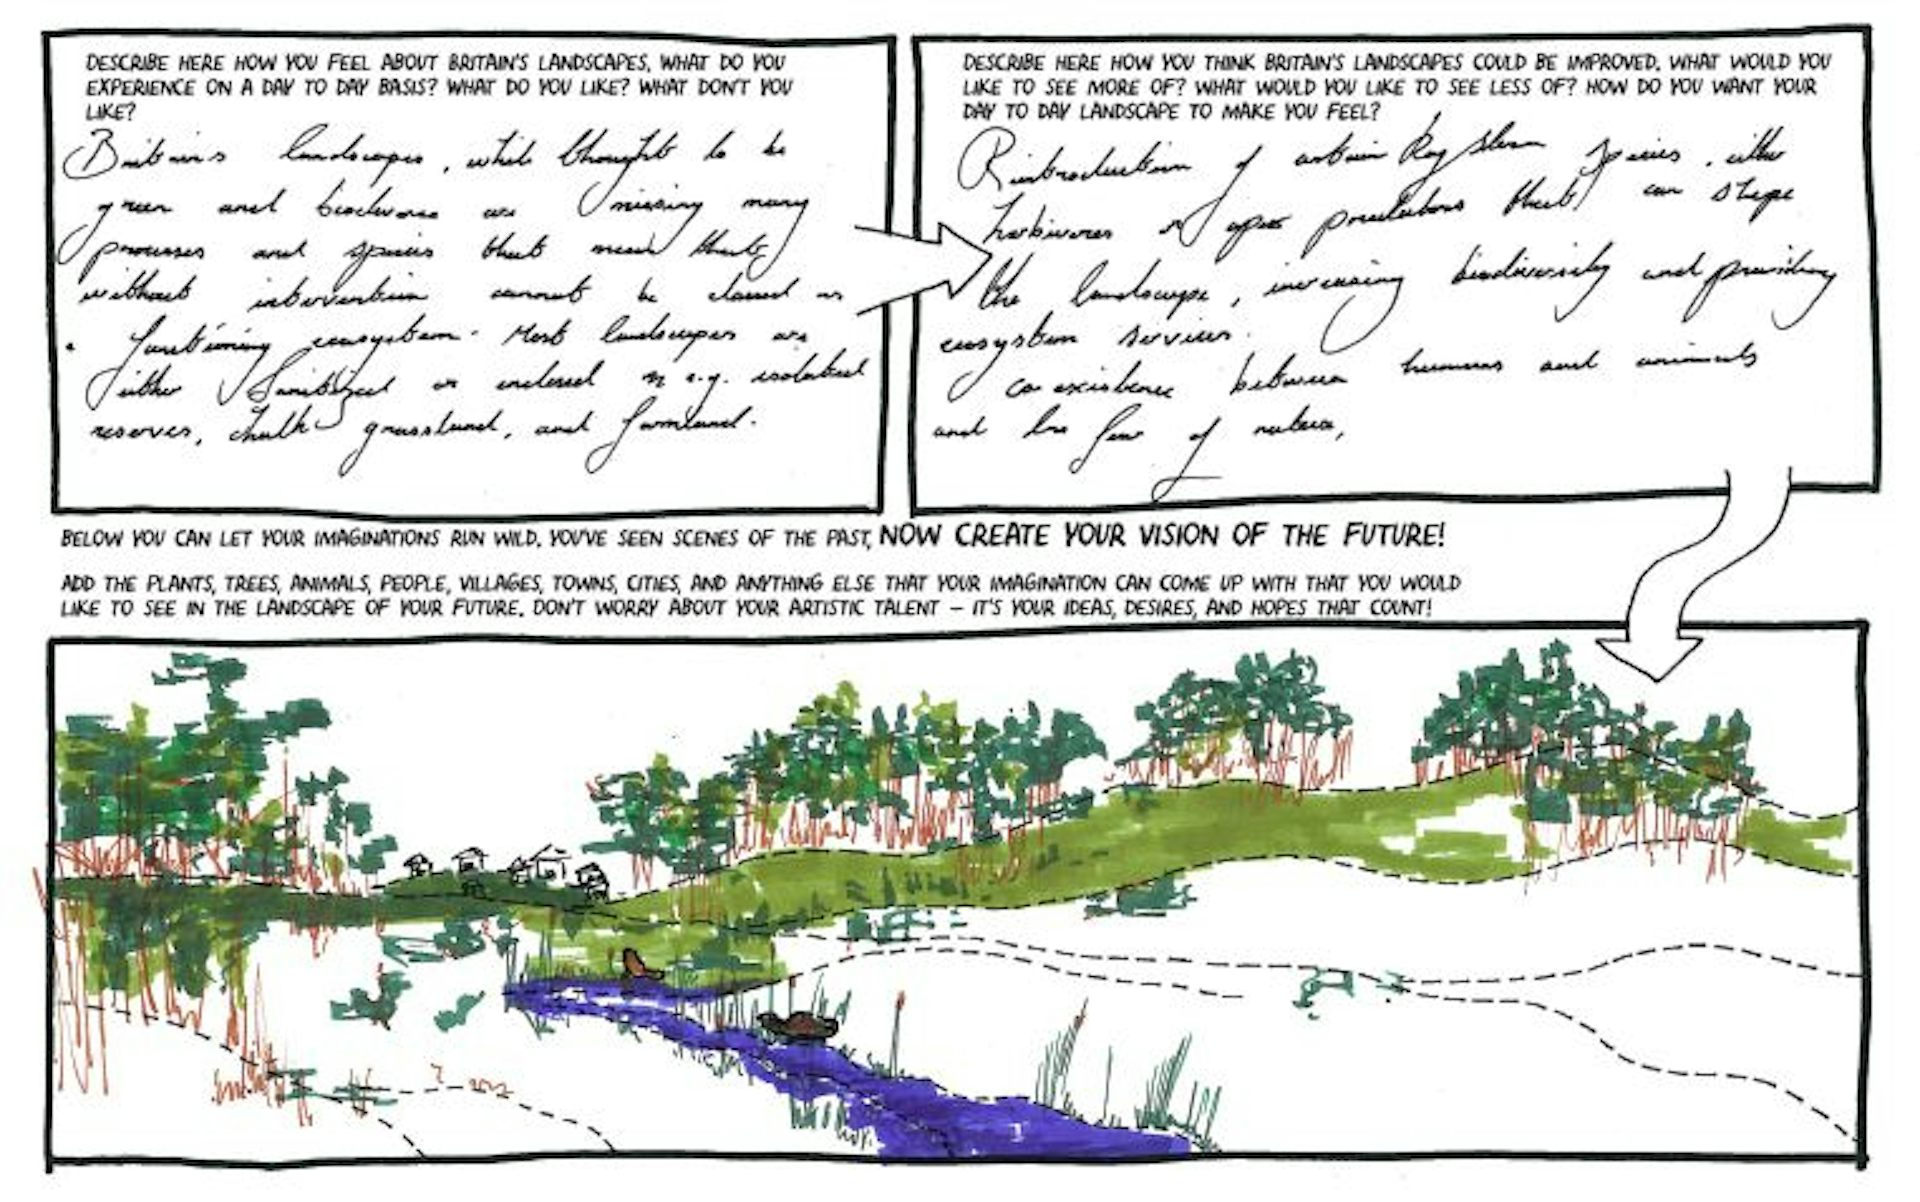 DESCRIBE HERE HOW YOU FEEL ABOUT BRITAIN'S LANDSCAPES, WHAT DO YOU
EXPERIENCE ON A DAY TO DAY BASIS? WHAT DO YOU LIKE? WHAT DON'T YOU
LIKE?
Britain's landscapes, while thought to be
green and biodiverse are missing many
processes and species that mean that
without intervention cannot be classed as
a functioning ecosystem. Most landscapes are
either sanitized or enclosed in e.g. isolated
reserves, chalk grassland, and farmland.
DESCRIBE HERE HOW YOU THINK BRITAIN'S LANDSCAPES COULD BE IMPROVED. WHAT WOULD YOU
LIKE TO SEE MORE OF? WHAT WOULD YOU LIKE TO SEE LESS OF? HOW DO YOU WANT YOUR
DAY TO DAY LANDSCAPE TO MAKE YOU FEEL?
Reintroduction of certain Key species, either
herbivores or apex predators that can shape
the landscape, increasing biodiversity and providing
ecosystem services.
Co existence between humans and animals
and less fear of nature,
BELOW YOU CAN LET YOUR IMAGINATIONS RUN WILD. YOU'VE SEEN SCENES OF THE PAST, NOW CREATE YOUR VISION OF THE FUTURE!
ADD THE PLANTS, TREES, ANIMALS, PEOPLE, VILLAGES, TOWNS, CITIES, AND ANYTHING ELSE THAT YOUR IMAGINATION CAN COME UP WITH THAT YOU WOULD
LIKE TO SEE IN THE LANDSCAPE OF YOUR FUTURE. DON'T WORRY ABOUT YOUR ARTISTIC TALENT – IT'S YOUR IDEAS, DESIRES, AND HOPES THAT COUNT!